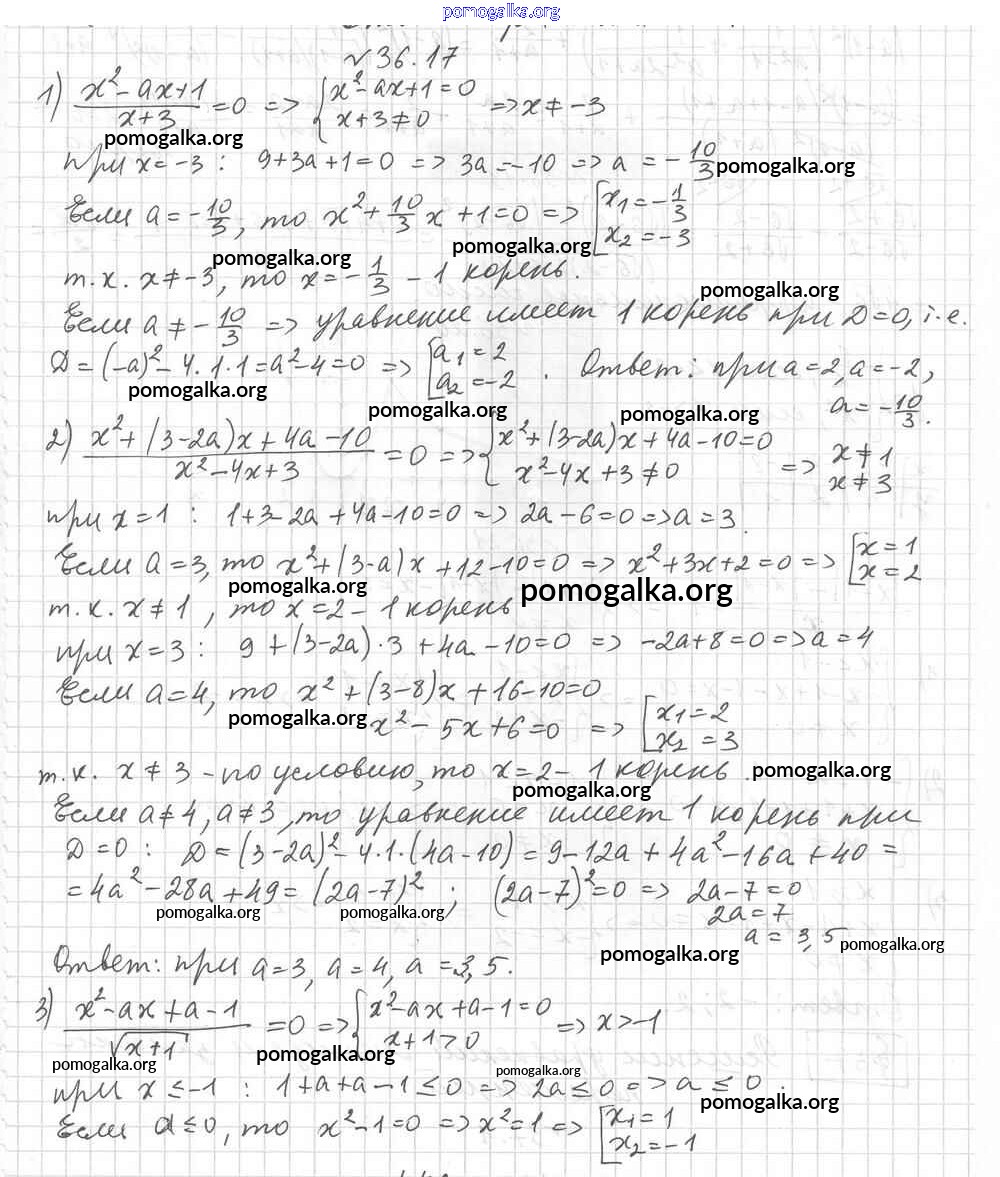 pomogalka.org
№ 36.17
1) (x² - ax + 1)/(x + 3) = 0 => { x² - ax + 1 = 0; x + 3 ≠ 0 => x ≠ -3
pomogalka.org
при x = -3 : 9 + 3a + 1 = 0 => 3a = -10 => a = -10/3 pomogalka.org
Если a = -10/3, то x² + 10/3 x + 1 = 0 => [ x₁ = -1/3; x₂ = -3
pomogalka.org pomogalka.org
т.к. x ≠ -3, то x = -1/3 - 1 корень.
pomogalka.org
Если a ≠ -10/3 => уравнение имеет 1 корень при D = 0, т.е.
D = (-a)² - 4·1·1 = a² - 4 = 0 => [ a₁ = 2; a₂ = -2 . Ответ: при a = 2, a = -2,
pomogalka.org a = -10/3.
pomogalka.org pomogalka.org
2) (x² + (3 - 2a)x + 4a - 10)/(x² - 4x + 3) = 0 => { x² + (3 - 2a)x + 4a - 10 = 0; x² - 4x + 3 ≠ 0 => x ≠ 1 x ≠ 3
при x = 1 : 1 + 3 - 2a + 4a - 10 = 0 => 2a - 6 = 0 => a = 3.
Если a = 3, то x² + (3 - a)x + 12 - 10 = 0 => x² + 3x + 2 = 0 => [ x = 1; x = 2
pomogalka.org pomogalka.org
т.к. x ≠ 1, то x = 2 - 1 корень
при x = 3 : 9 + (3 - 2a)·3 + 4a - 10 = 0 => -2a + 8 = 0 => a = 4
Если a = 4, то x² + (3 - 8)x + 16 - 10 = 0
pomogalka.org x² - 5x + 6 = 0 => [ x₁ = 2; x₂ = 3
т.к. x ≠ 3 - по условию, то x = 2 - 1 корень. pomogalka.org
pomogalka.org
Если a ≠ 4, a ≠ 3, то уравнение имеет 1 корень при
D = 0 : D = (3 - 2a)² - 4·1·(4a - 10) = 9 - 12a + 4a² - 16a + 40 =
= 4a² - 28a + 49 = (2a - 7)² ; (2a - 7)² = 0 => 2a - 7 = 0
pomogalka.org pomogalka.org 2a = 7
a = 3,5 pomogalka.org
pomogalka.org
Ответ: при a = 3, a = 4, a = 3,5.
3) (x² - ax + a - 1)/√(x + 1) = 0 => { x² - ax + a - 1 = 0; x + 1 > 0 => x > -1
pomogalka.org pomogalka.org
pomogalka.org
при x ≤ -1 : 1 + a + a - 1 ≤ 0 => 2a ≤ 0 => a ≤ 0.
pomogalka.org
Если a ≤ 0, то x² - 1 = 0 => x² = 1 => [ x₁ = 1; x₂ = -1